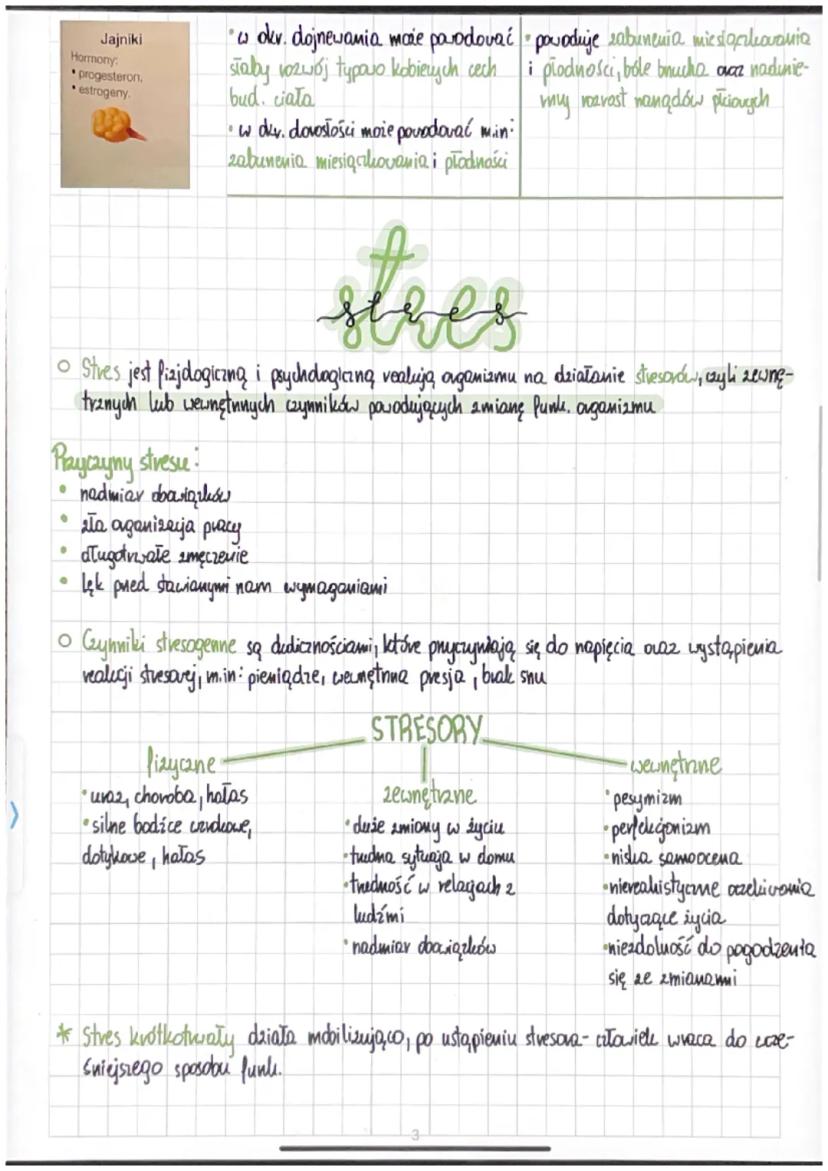 Jajniki
Hormony:
• progesteron,
• estrogeny.
• w okr. dojrzewania może powodować
słaby rozwój typowo kobiecych cech
bud. ciała
• w okr. dorosłości może powodować m.in:
zaburzenia miesiączkowania i płodności
• powoduje zaburzenia miesiączkowania
i płodności, bóle brzucha oraz nadmie-
rny rozrost narządów płciowych
stres
stres
○ Stres jest fizjologiczną i psychologiczną reakcją organizmu na działanie stresorów, czyli zewnę-
trznych lub wewnętrznych czynników powodujących zmianę funk. organizmu
Przyczyny stresu:
• nadmiar obowiązków
• zła organizacja pracy
• długotrwałe zmęczenie
• lęk przed stawianymi nam wymaganiami
○ Czynniki stresogenne są okolicznościami, które przyczyniają się do napięcia oraz wystąpienia
reakcji stresowej, m.in: pieniądze, wewnętrzna presja, brak snu
STRESORY
fizyczne
• uraz, choroba, hałas
• silne bodźce wzrokowe,
dotykowe, hałas
zewnętrzne
• duże zmiany w życiu
• trudna sytuacja w domu
• trudność w relacjach z
ludźmi
• nadmiar obowiązków
wewnętrzne
• pesymizm
• perfekcjonizm
• niska samoocena
• nierealistyczne oczekiwania
dotyczące życia
• niezdolność do pogodzenia
się ze zmianami
* Stres krótkotrwały działa mobilizująco, po ustąpieniu stresora - człowiek wraca do wcze-
śniejszego sposobu funk.
3